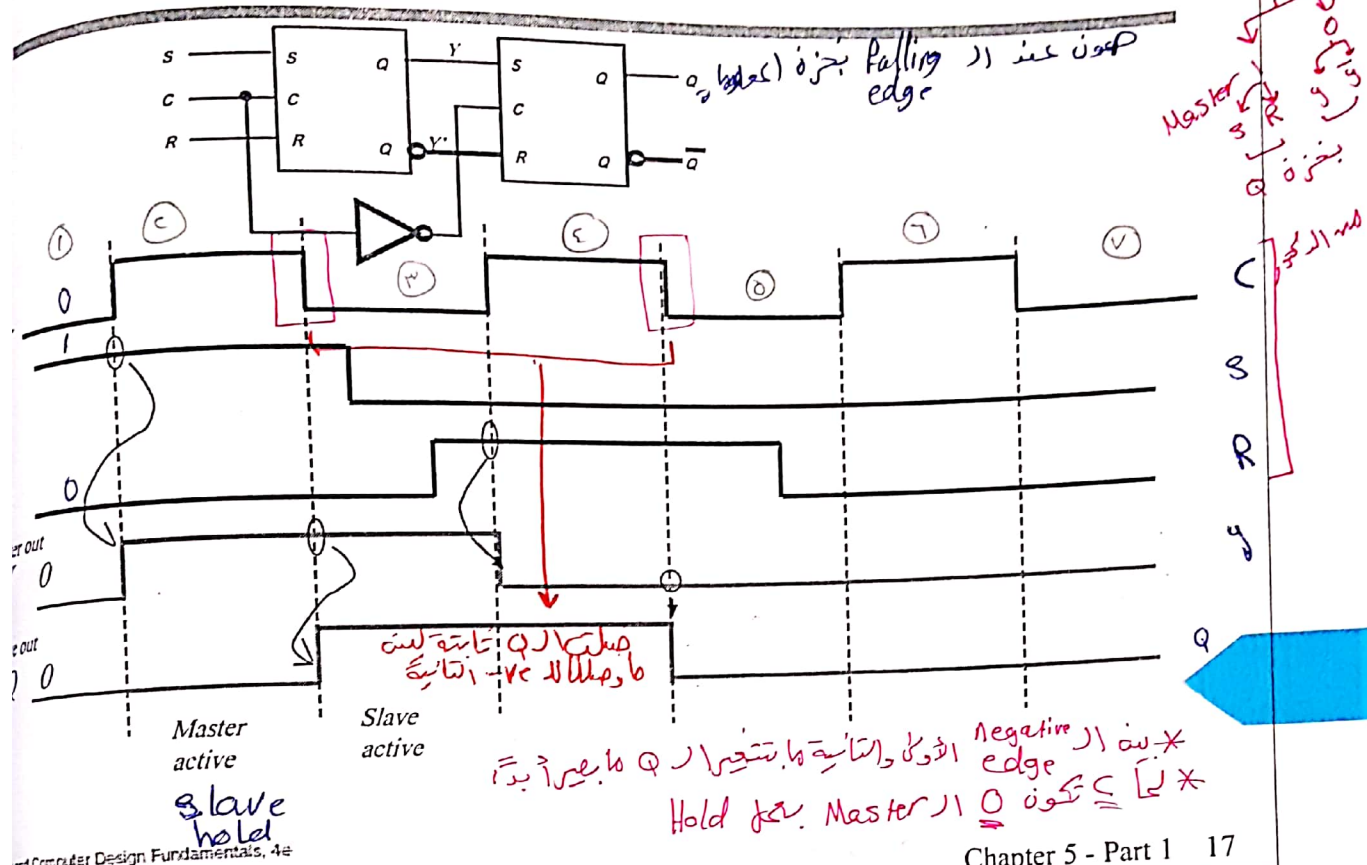 S S Q Y S Q Q
C C C
R R Q Y' R Q Q
هون عند ال falling بخزن
edge
Master
S R
y y
بخزن
Q
١ ٢ ٣ ٤ ٥ ٦ ٧
0 C
1 S
0 R
er out
0 y
e out
0 Q
ضلت ال Q ثابتة لبين
ما وصلنا لل -ve الثانية
Master
active
Slave
active
slave
hold
* بين ال negative edge الأولى والثانية ما بتتغير ال Q ما بصير أبدًا
* لما C تكون 0 ال Master بعمل Hold
Computer Design Fundamentals, 4e
Chapter 5 - Part 1 17